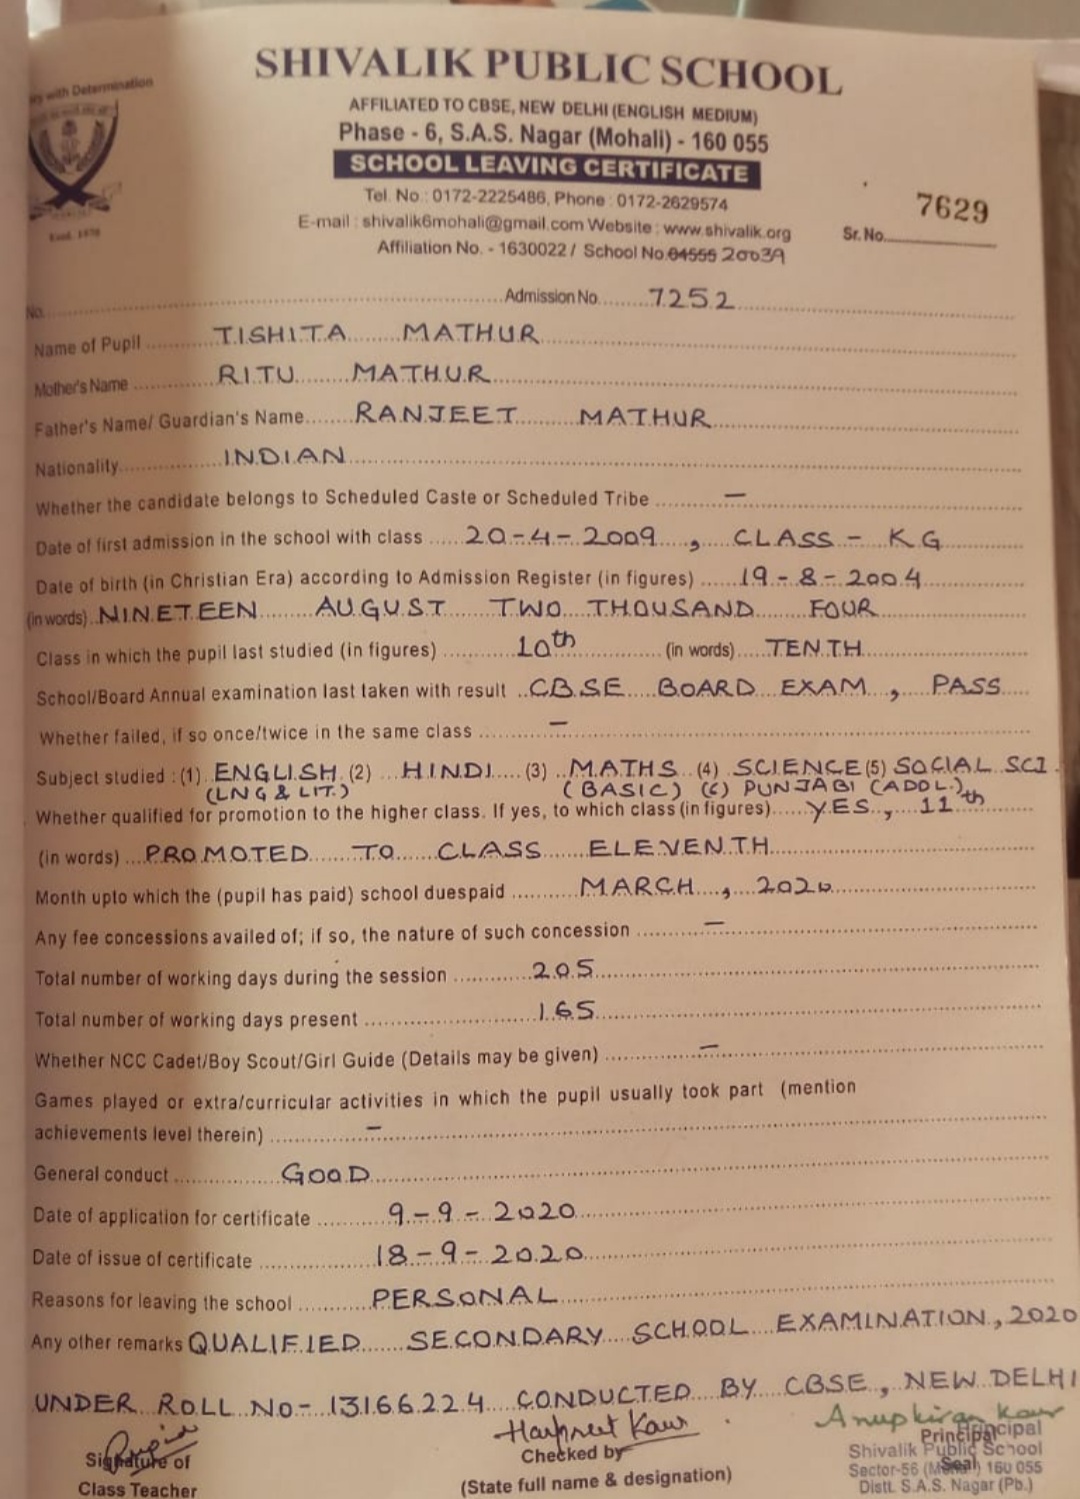 SHIVALIK PUBLIC SCHOOL
with Determination
AFFILIATED TO CBSE, NEW DELHI (ENGLISH MEDIUM)
Phase - 6, S.A.S. Nagar (Mohali) - 160 055
SCHOOL LEAVING CERTIFICATE
Tel. No.: 0172-2225486, Phone : 0172-2629574
E-mail : shivalik6mohali@gmail.com Website : www.shivalik.org
Affiliation No. - 1630022 / School No. 04555 20039
Sr. No. 7629
Estd. 1970
No. Admission No. 7252
Name of Pupil TISHITA MATHUR
Mother's Name RITU MATHUR
Father's Name/ Guardian's Name RANJEET MATHUR
Nationality INDIAN
Whether the candidate belongs to Scheduled Caste or Scheduled Tribe —
Date of first admission in the school with class 20-4-2009, CLASS - KG
Date of birth (in Christian Era) according to Admission Register (in figures) 19-8-2004
(in words) NINETEEN AUGUST TWO THOUSAND FOUR
Class in which the pupil last studied (in figures) 10th (in words) TENTH
School/Board Annual examination last taken with result CBSE BOARD EXAM, PASS
Whether failed, if so once/twice in the same class —
Subject studied : (1) ENGLISH (2) HINDI (3) MATHS (4) SCIENCE (5) SOCIAL SCI
(LNG & LIT.) (BASIC) (6) PUNJABI (ADDL.)
Whether qualified for promotion to the higher class. If yes, to which class (in figures) YES, 11th
(in words) PROMOTED TO CLASS ELEVENTH
Month upto which the (pupil has paid) school duespaid MARCH, 2020
Any fee concessions availed of; if so, the nature of such concession —
Total number of working days during the session 205
Total number of working days present 165
Whether NCC Cadet/Boy Scout/Girl Guide (Details may be given) —
Games played or extra/curricular activities in which the pupil usually took part (mention
achievements level therein) —
General conduct GOOD
Date of application for certificate 9-9-2020
Date of issue of certificate 18-9-2020
Reasons for leaving the school PERSONAL
Any other remarks QUALIFIED SECONDARY SCHOOL EXAMINATION, 2020
UNDER ROLL NO- 13166224 CONDUCTED BY CBSE, NEW DELHI
Harpreet Kaur Anupkiran Kaur
Signature of Checked by Principal Principal
Class Teacher (State full name & designation) Seal
Shivalik Public School
Sector-56 (Mohali) 160 055
Distt. S.A.S. Nagar (Pb.)